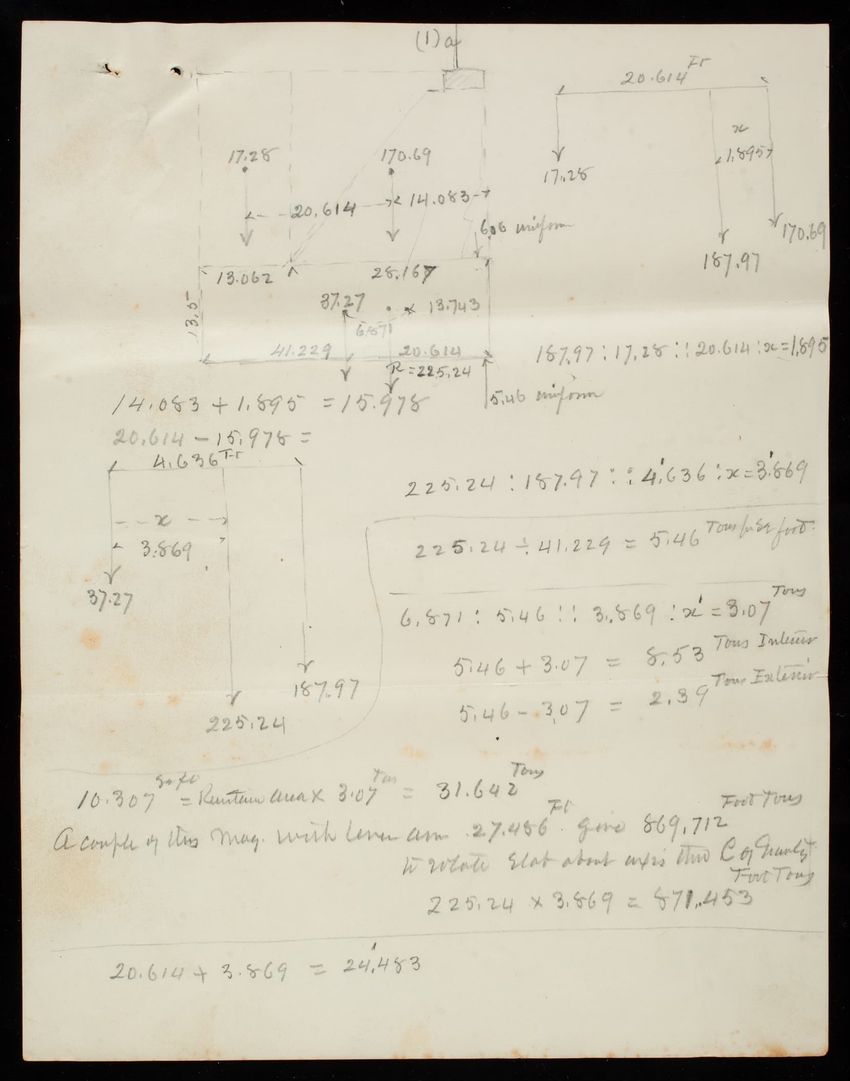 (1)a
20.614 Ft
17.28
170.69
x
1.895
20.614
14.083
17.28
170.69
6.06 uniform
187.97
13.062
28.167
37.27
13.743
13.5
6.871
41.229
20.614
187.97 : 17.28 :: 20.614 : x = 1.895
R = 225.24
5.46 uniform
14.083 + 1.895 = 15.978
20.614 - 15.978 =
4.636 Ft
225.24 : 187.97 :: 4.636 : x = 3.869
x
3.869
225.24 ÷ 41.229 = 5.46 Tons per Sq foot.
37.27
6.871 : 5.46 :: 3.869 : x' = 3.07 Tons
5.46 + 3.07 = 8.53 Tons Interior
187.97
5.46 - 3.07 = 2.39 Tons Exterior
225.24
10.307 Sq ft = area x 3.07 Tons = 31.642 Tons
A couple of this Mag. with lever arm 27.486 Ft. give 869.712 Foot Tons
to rotate Slab about axis thro C of Gravity
225.24 x 3.869 = 871.453 Foot Tons
20.614 + 3.869 = 24.483